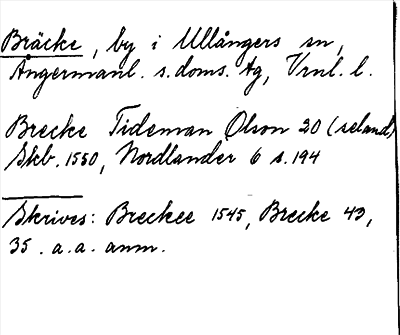 Bräcke, by i Ullångers sn,
Ångermanl. s. doms. tg, Vrnl. l.
Brecke Tideman Olson 20 (seland)
Skb. 1550, Nordlander 6 s. 194
Skrives: Breckee 1545, Brecke 43,
35. a.a. anm.